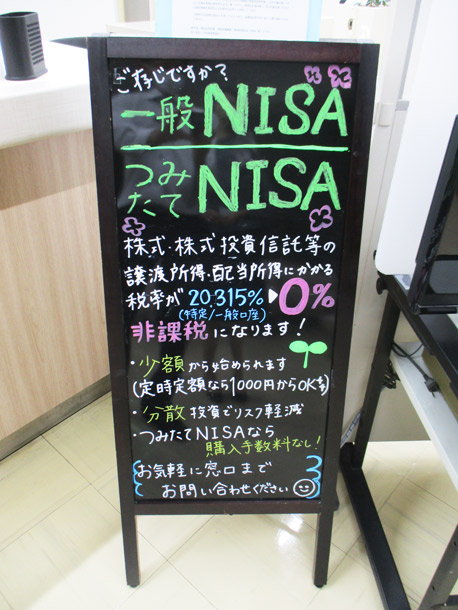 ご存じですか?
一般NISA
つみたてNISA
株式・株式投資信託等の
譲渡所得・配当所得にかかる
税率が 20.315% ▶ 0%
(特定/一般口座)
非課税になります!
・少額から始められます
(定時定額なら1000円からOK!)
・分散投資でリスク軽減
・つみたてNISAなら
購入手数料なし!
お気軽に窓口まで
お問い合わせください